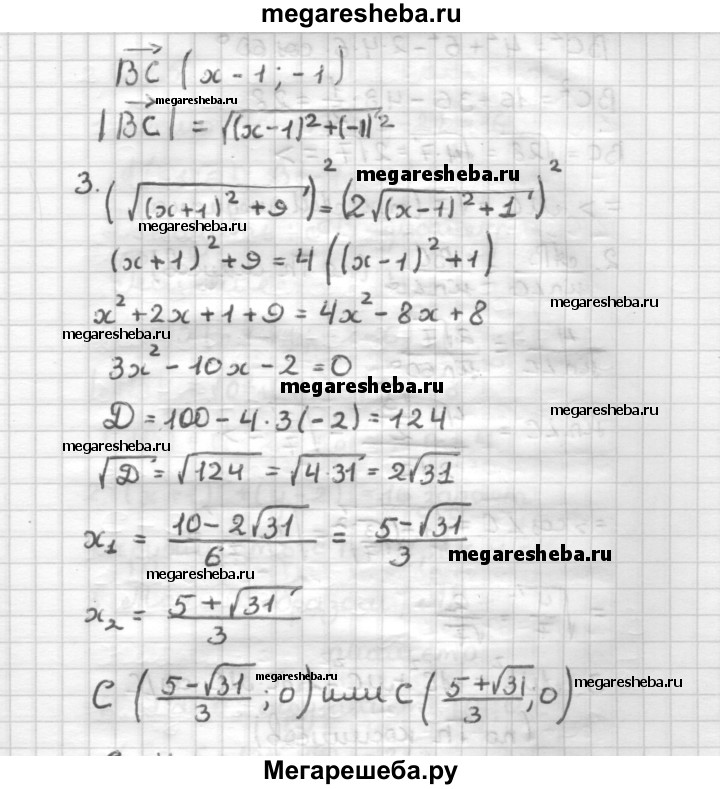 megaresheba.ru
BC⃗ (x - 1; -1)
megaresheba.ru
|BC⃗| = √((x-1)²+(-1)²)
megaresheba.ru
3. (√((x+1)²+9))² = (2√((x-1)²+1))²
megaresheba.ru
(x+1)²+9 = 4((x-1)²+1)
x²+2x+1+9 = 4x²-8x+8
megaresheba.ru
megaresheba.ru
3x²-10x-2=0
megaresheba.ru
D = 100-4·3(-2) = 124
megaresheba.ru
megaresheba.ru
√D = √124 = √(4·31) = 2√31
x₁ = (10-2√31)/6 = (5-√31)/3
megaresheba.ru
megaresheba.ru
x₂ = (5+√31)/3
megaresheba.ru
C ((5-√31)/3; 0) или C ((5+√31)/3; 0)
megaresheba.ru
Мегарешеба.ру